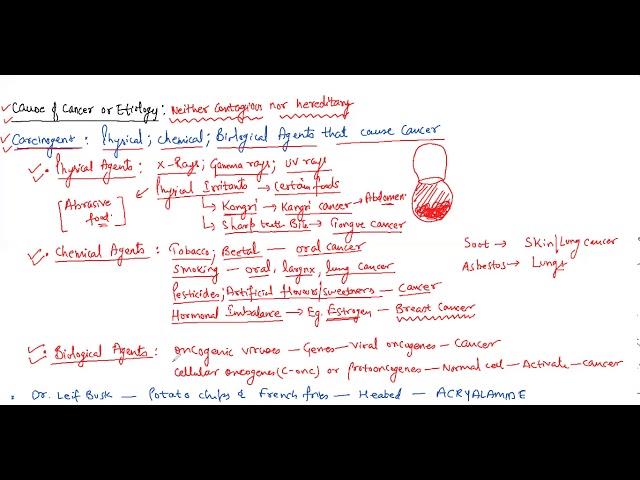 Cause of Cancer or Etiology: Neither contagious nor hereditary
Carcinogent: Physical; chemical; Biological Agents that cause cancer
Physical Agents: X-Rays; Gamma rays; UV rays
[Abrasive food.] ← Physical Irritants → certain foods
↳ Kangri → Kangri cancer → Abdomen
↳ Sharp teeth Bite → Tongue cancer
Chemical Agents: Tobacco; Beetal — oral cancer
Soot → Skin/Lung cancer
Smoking — oral, larynx, lung cancer
Asbestos → Lungs
Pesticides; Artificial flavours/sweetners — Cancer
Hormonal Imbalance → Eg. Estrogen — Breast Cancer
Biological Agents: oncogenic viruses — Genes — Viral oncogenes — Cancer
Cellular oncogenes (C-onc) or protooncogenes — Normal cell — Activate — cancer
Dr. Leif Busk — Potato chips & French fries — Heated — ACRYALAMIDE